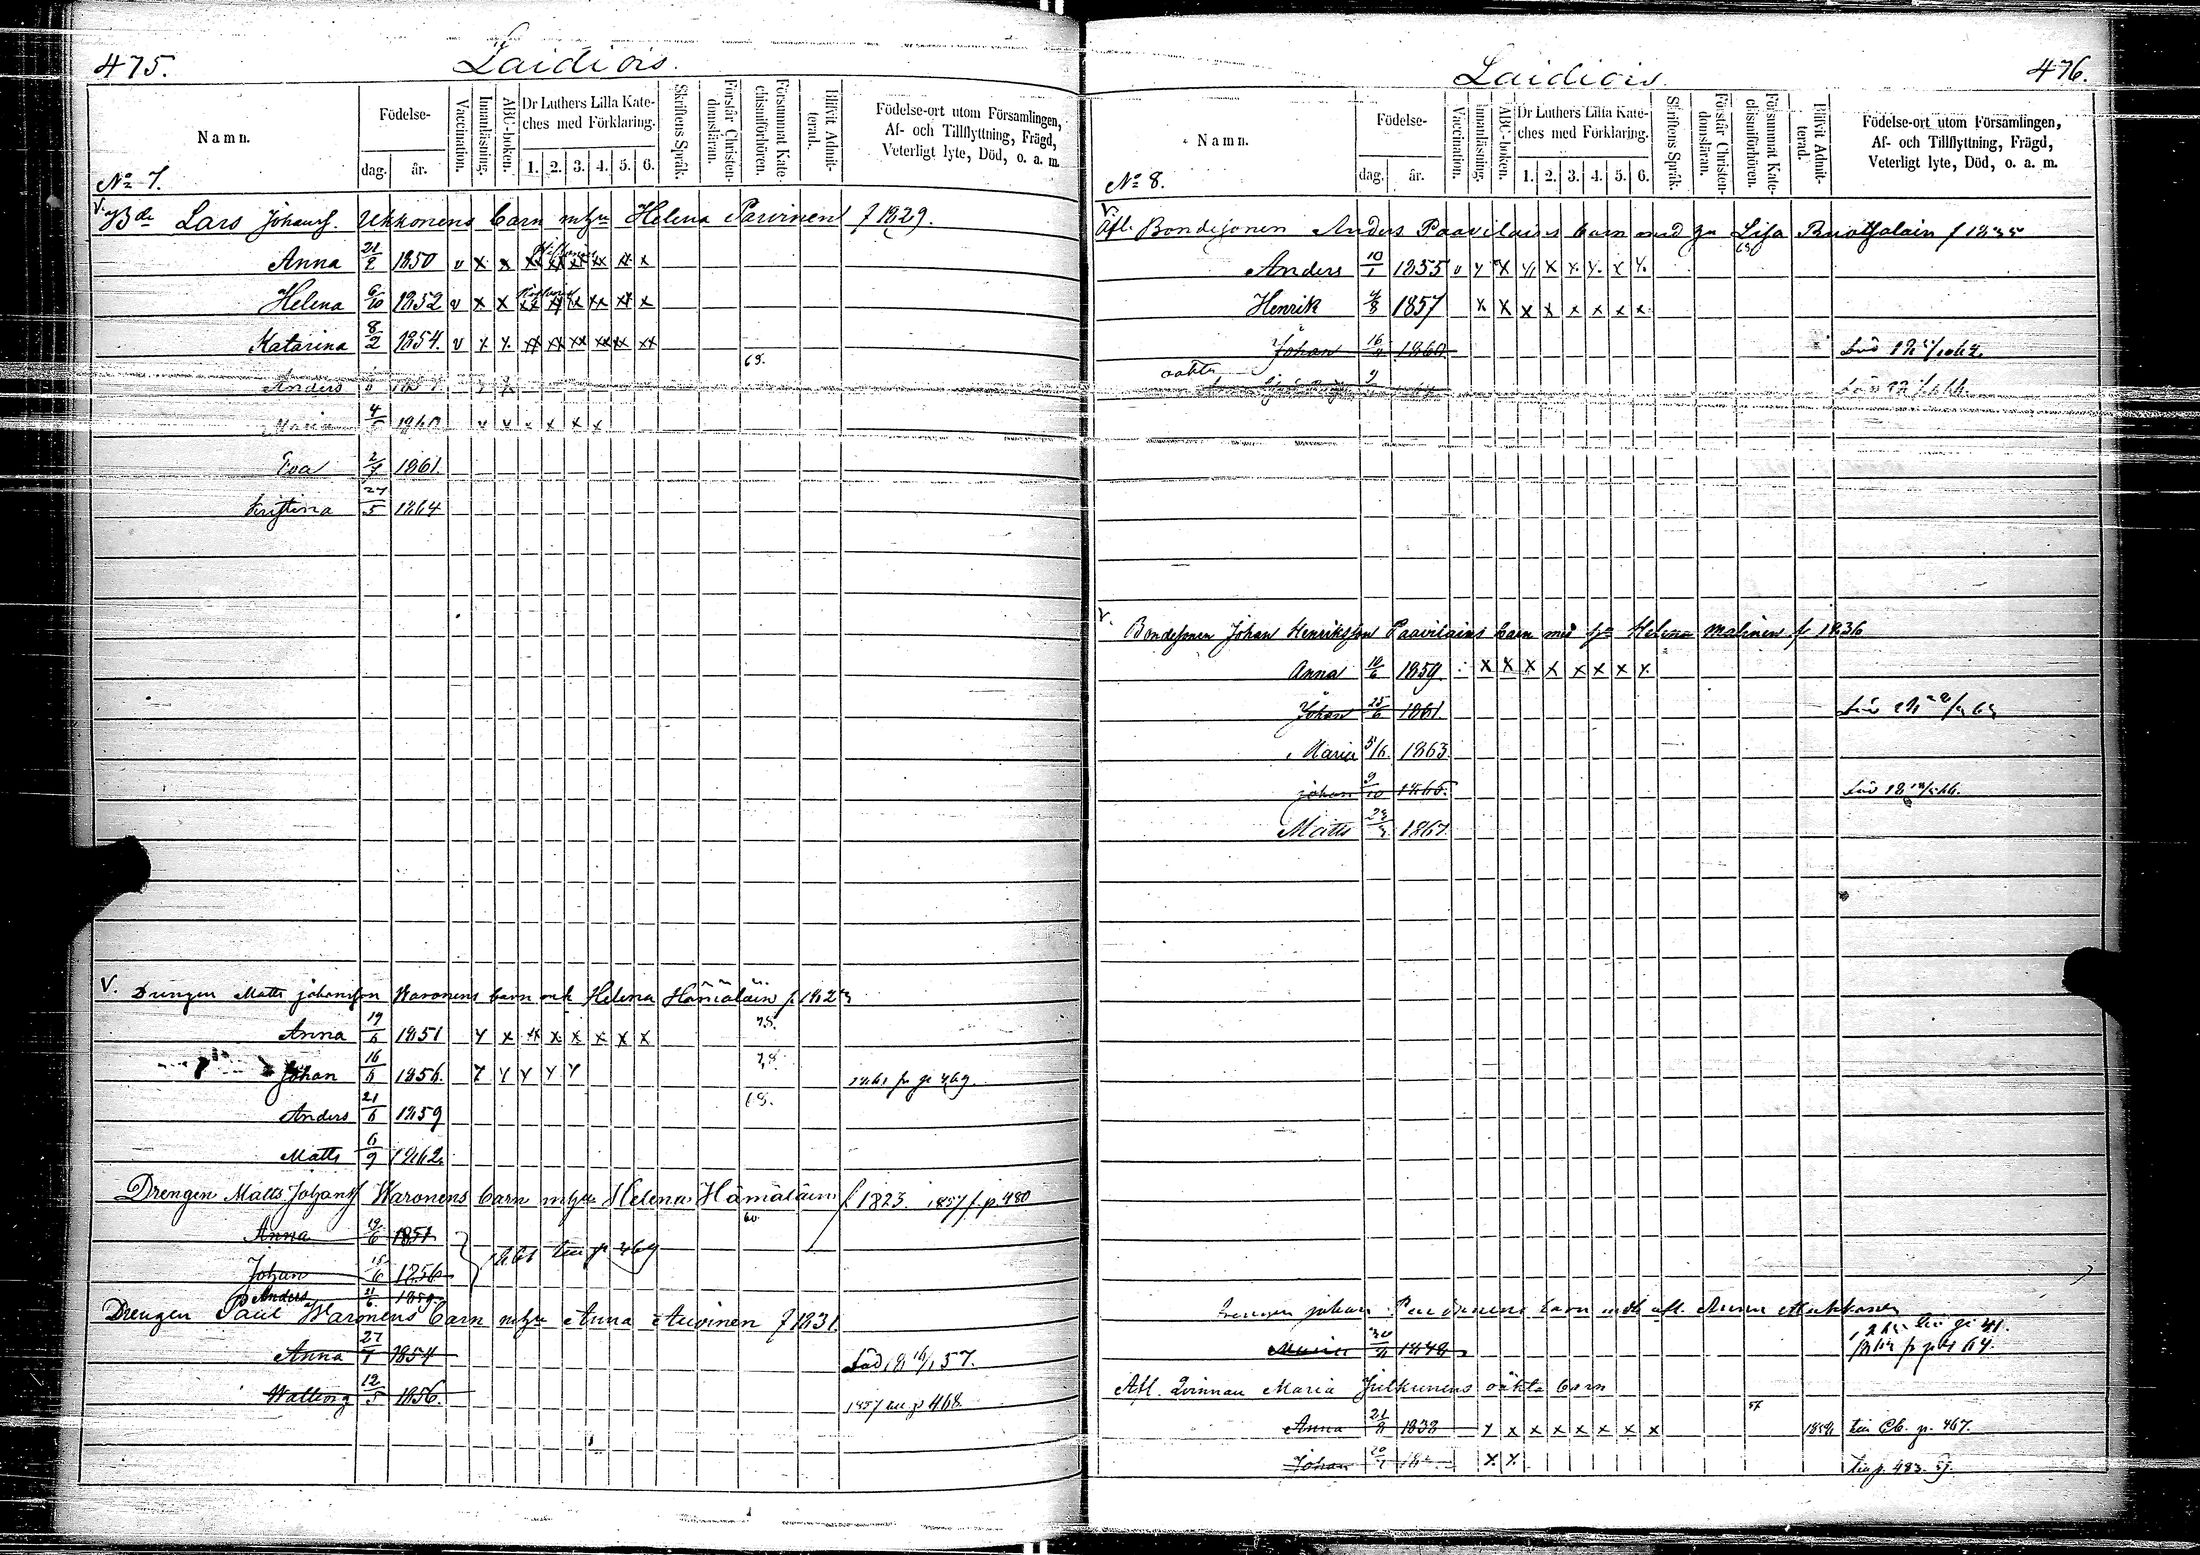 475.
Laidiois.
Namn.
Födelse-
dag.
år.
Vaccination.
Innanläsning.
ABC-boken.
Dr Luthers Lilla Kate-
ches med Förklaring.
1. 2. 3. 4. 5. 6.
Skriftens Språk.
Förstår Christen-
domsläran.
Försummat Kate-
chismiförhören.
Blifvit Admit-
terad.
Födelse-ort utom Församlingen,
Af- och Tillflyttning, Frägd,
Veterligt lyte, Död, o. a. m.
No 7.
V. Bde Lars Johansf. Ukkonens barn m hu Helena Parvinen f 1829.
Anna 21/2 1850 v x x xx xx xx xx xx x
Helena 6/10 1852 v x x xx xx x xx xx x
Katarina 8/2 1854. v x x xx xx xx xx xx xx
68.
Anders
Maria 4/ 1860 x x x x x x
Eva 2/7 1861.
Kristina 27/5 1864
V. Drengen Matts Johansson Waronens barn m h Helena Hämäläin f. 1823
Anna 19/6 1851 x x xx x x x x x 75.
Johan 16/6 1856. x x x x x 1861 fr pe 469.
Anders 21/6 1859 68.
Matts 6/9 1862.
Drengen Matts Johansf Waronens barn m hu Helena Hämäläin f 1823. 1857 f. p. 480
60.
Anna 19/6 1851
Johan 15/6 1856
1861 till p 469
Anders 21/6 1859
Drengen Paul Waronens barn m hu Anna Auvinen f 1831.
Anna 27/1 1854 död 18 57.
Walborg 12/5 1856. 1857 till p 468.
Laidiois.
476.
Namn.
Födelse-
dag.
år.
Vaccination.
Innanläsning.
ABC-boken.
Dr Luthers Lilla Kate-
ches med Förklaring.
1. 2. 3. 4. 5. 6.
Skriftens Språk.
Förstår Christen-
domsläran.
Försummat Kate-
chismiförhören.
Blifvit Admit-
terad.
Födelse-ort utom Församlingen,
Af- och Tillflyttning, Frägd,
Veterligt lyte, Död, o. a. m.
No 8.
V. Afl. Bondesonen Anders Paavilais barn med hu Lisa f 1835
Anders 10/1 1855 v x x x x x x x x
Henrik 4/8 1857 x x x x x x x x
Johan 16/ 1860 Död
oäkta
V. Bondesonen Johan Henriksson Paavilains barn med hu Helena Malinen f 1836
Anna 10/6 1859. x x x x x x x x
Johan 25/6 1861
Maria 5/6. 1863.
Johan 9/10 1865. död
Matts 23/3 1867.
Drengen Johan barn m h afl. Anna Mukkonen
Maria 30/ 1848 till pe 41.
64.
Afl. Qvinnan Maria Julkunens oäkta barn
57
Anna 21/8 1838 x x x x x x x x till Cb. p. 467.
Johan 20/ x x till p. 483. 57.